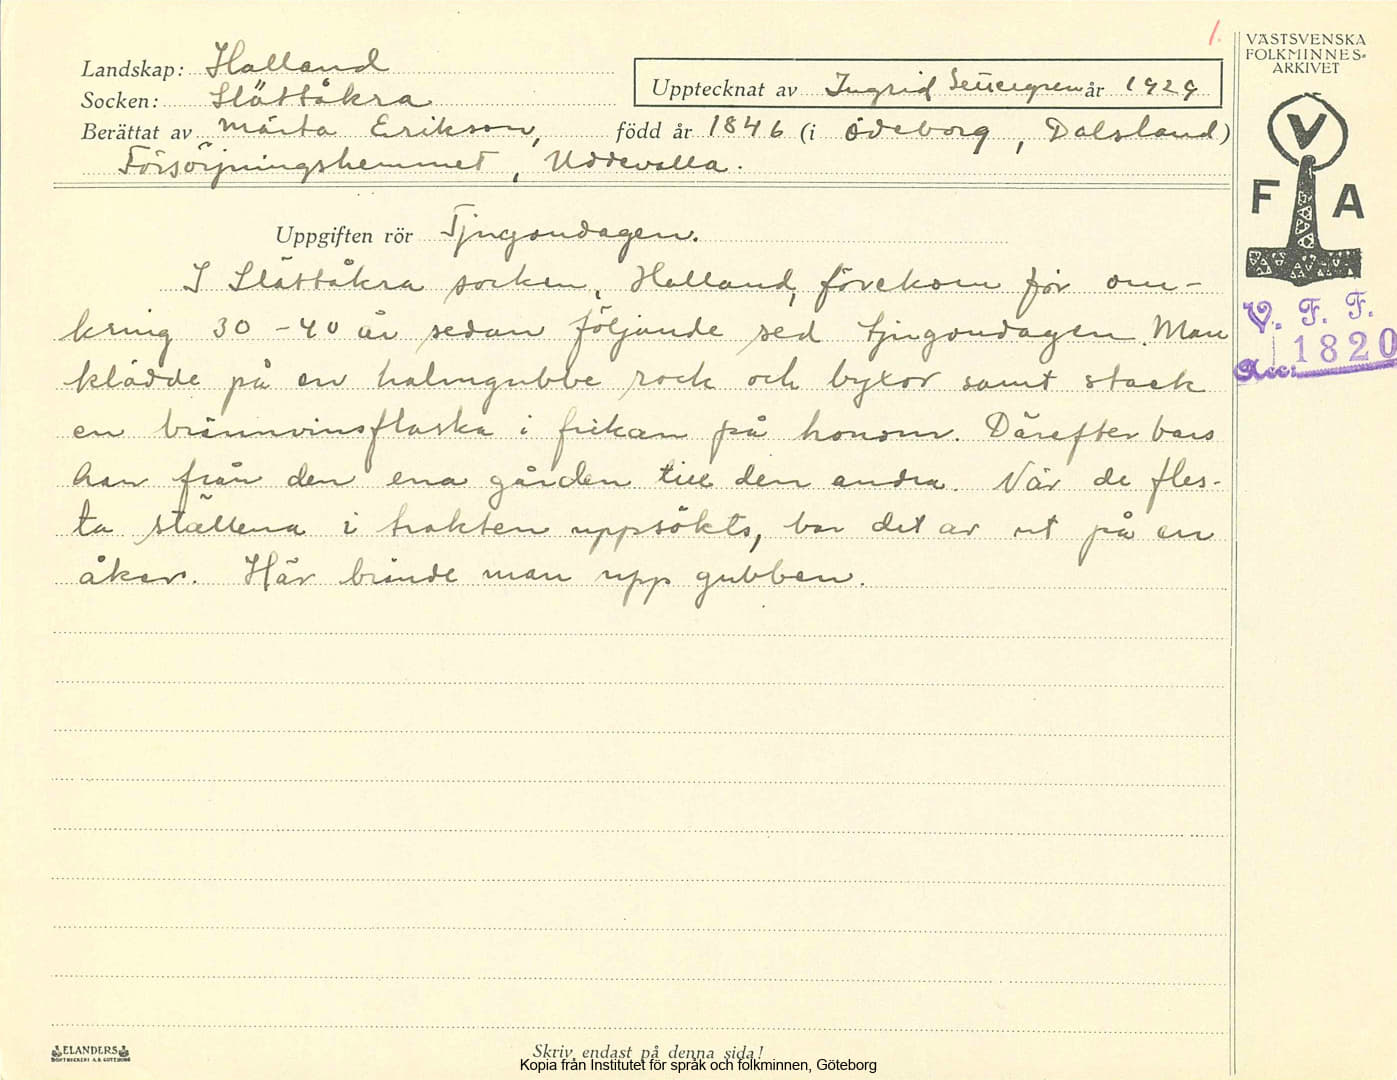 1.
Landskap: Halland
Socken: Slättåkra
Upptecknat av Ingrid år 1929
Berättat av Märta Erikson, född år 1846 (i Ödeborg, Dalsland)
Försörjningshemmet, Uddevalla.
VÄSTSVENSKA
FOLKMINNES-
ARKIVET
V
F A
V. F. F.
Acc: 1820
Uppgiften rör Tjugondagen.
I Slättåkra socken, Halland, förekom för om-
kring 30-40 år sedan följande sed tjugondagen. Man
klädde på en halmgubbe rock och byxor samt stack
en brännvinsflaska i fickan på honom. Därefter bars
han från den ena gården till den andra. När de fles-
ta ställena i trakten uppsökts, bar det av ut på en
åker. Här brände man upp gubben.
ELANDERS
BOKTRYCKERI A.B. GÖTEBORG
Skriv endast på denna sida!
Kopia från Institutet för språk och folkminnen, Göteborg